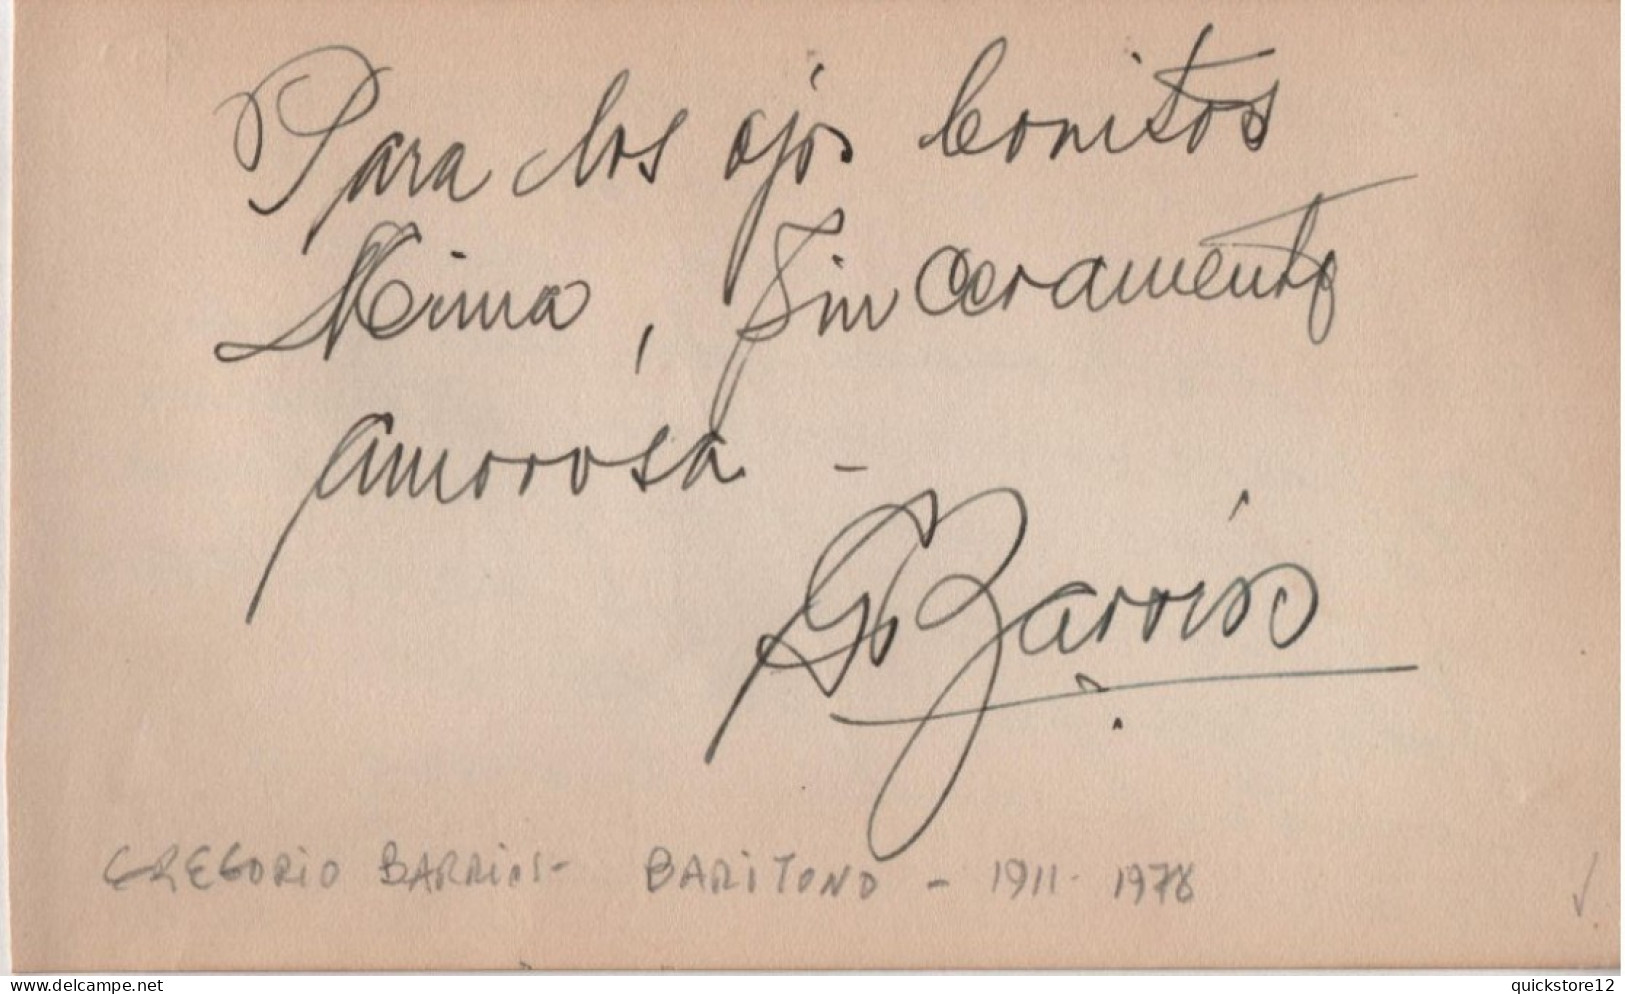 Para los ojos bonitos
Mima, Sinceramente
amorosa -
G Barrios
GREGORIO BARRIOS - BARITONO - 1911 - 1978
delcampe.net
quickstore12